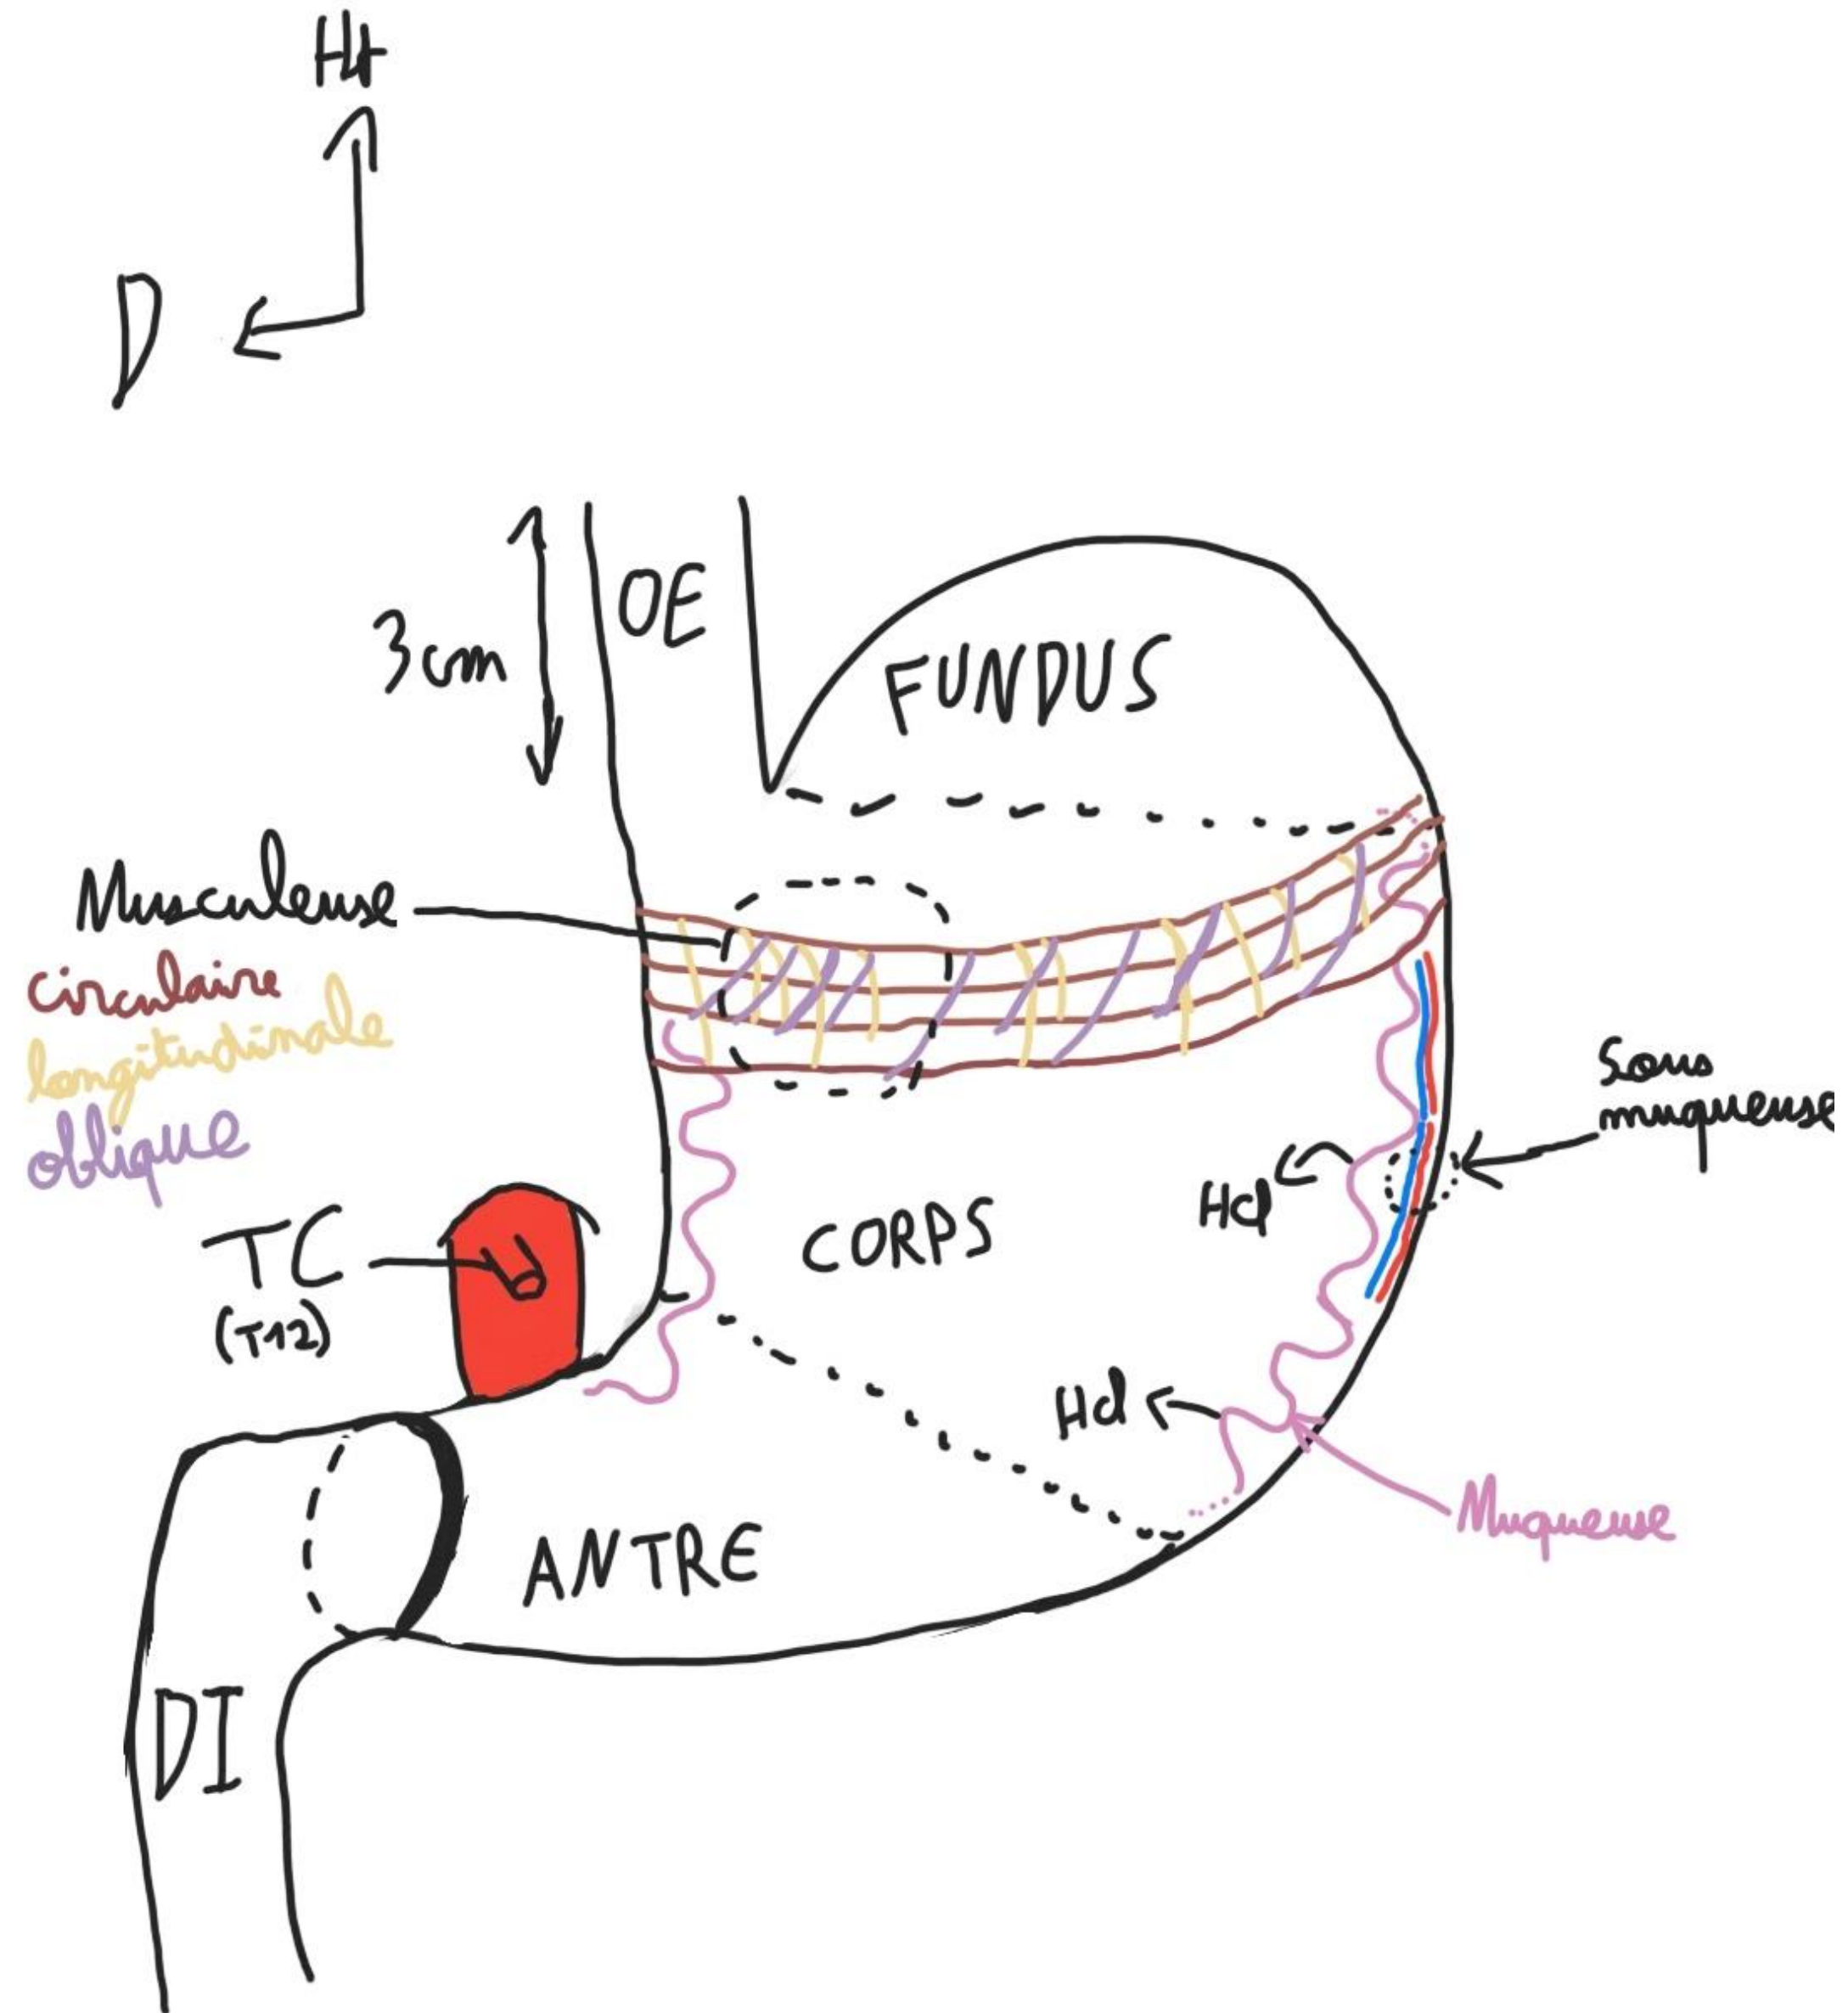 Ht
D
3cm
OE
FUNDUS
Musculeuse
circulaire
longitudinale
oblique
Sous
muqueuse
TC
(T12)
CORPS
Hcl
Hcl
Muqueuse
ANTRE
DI